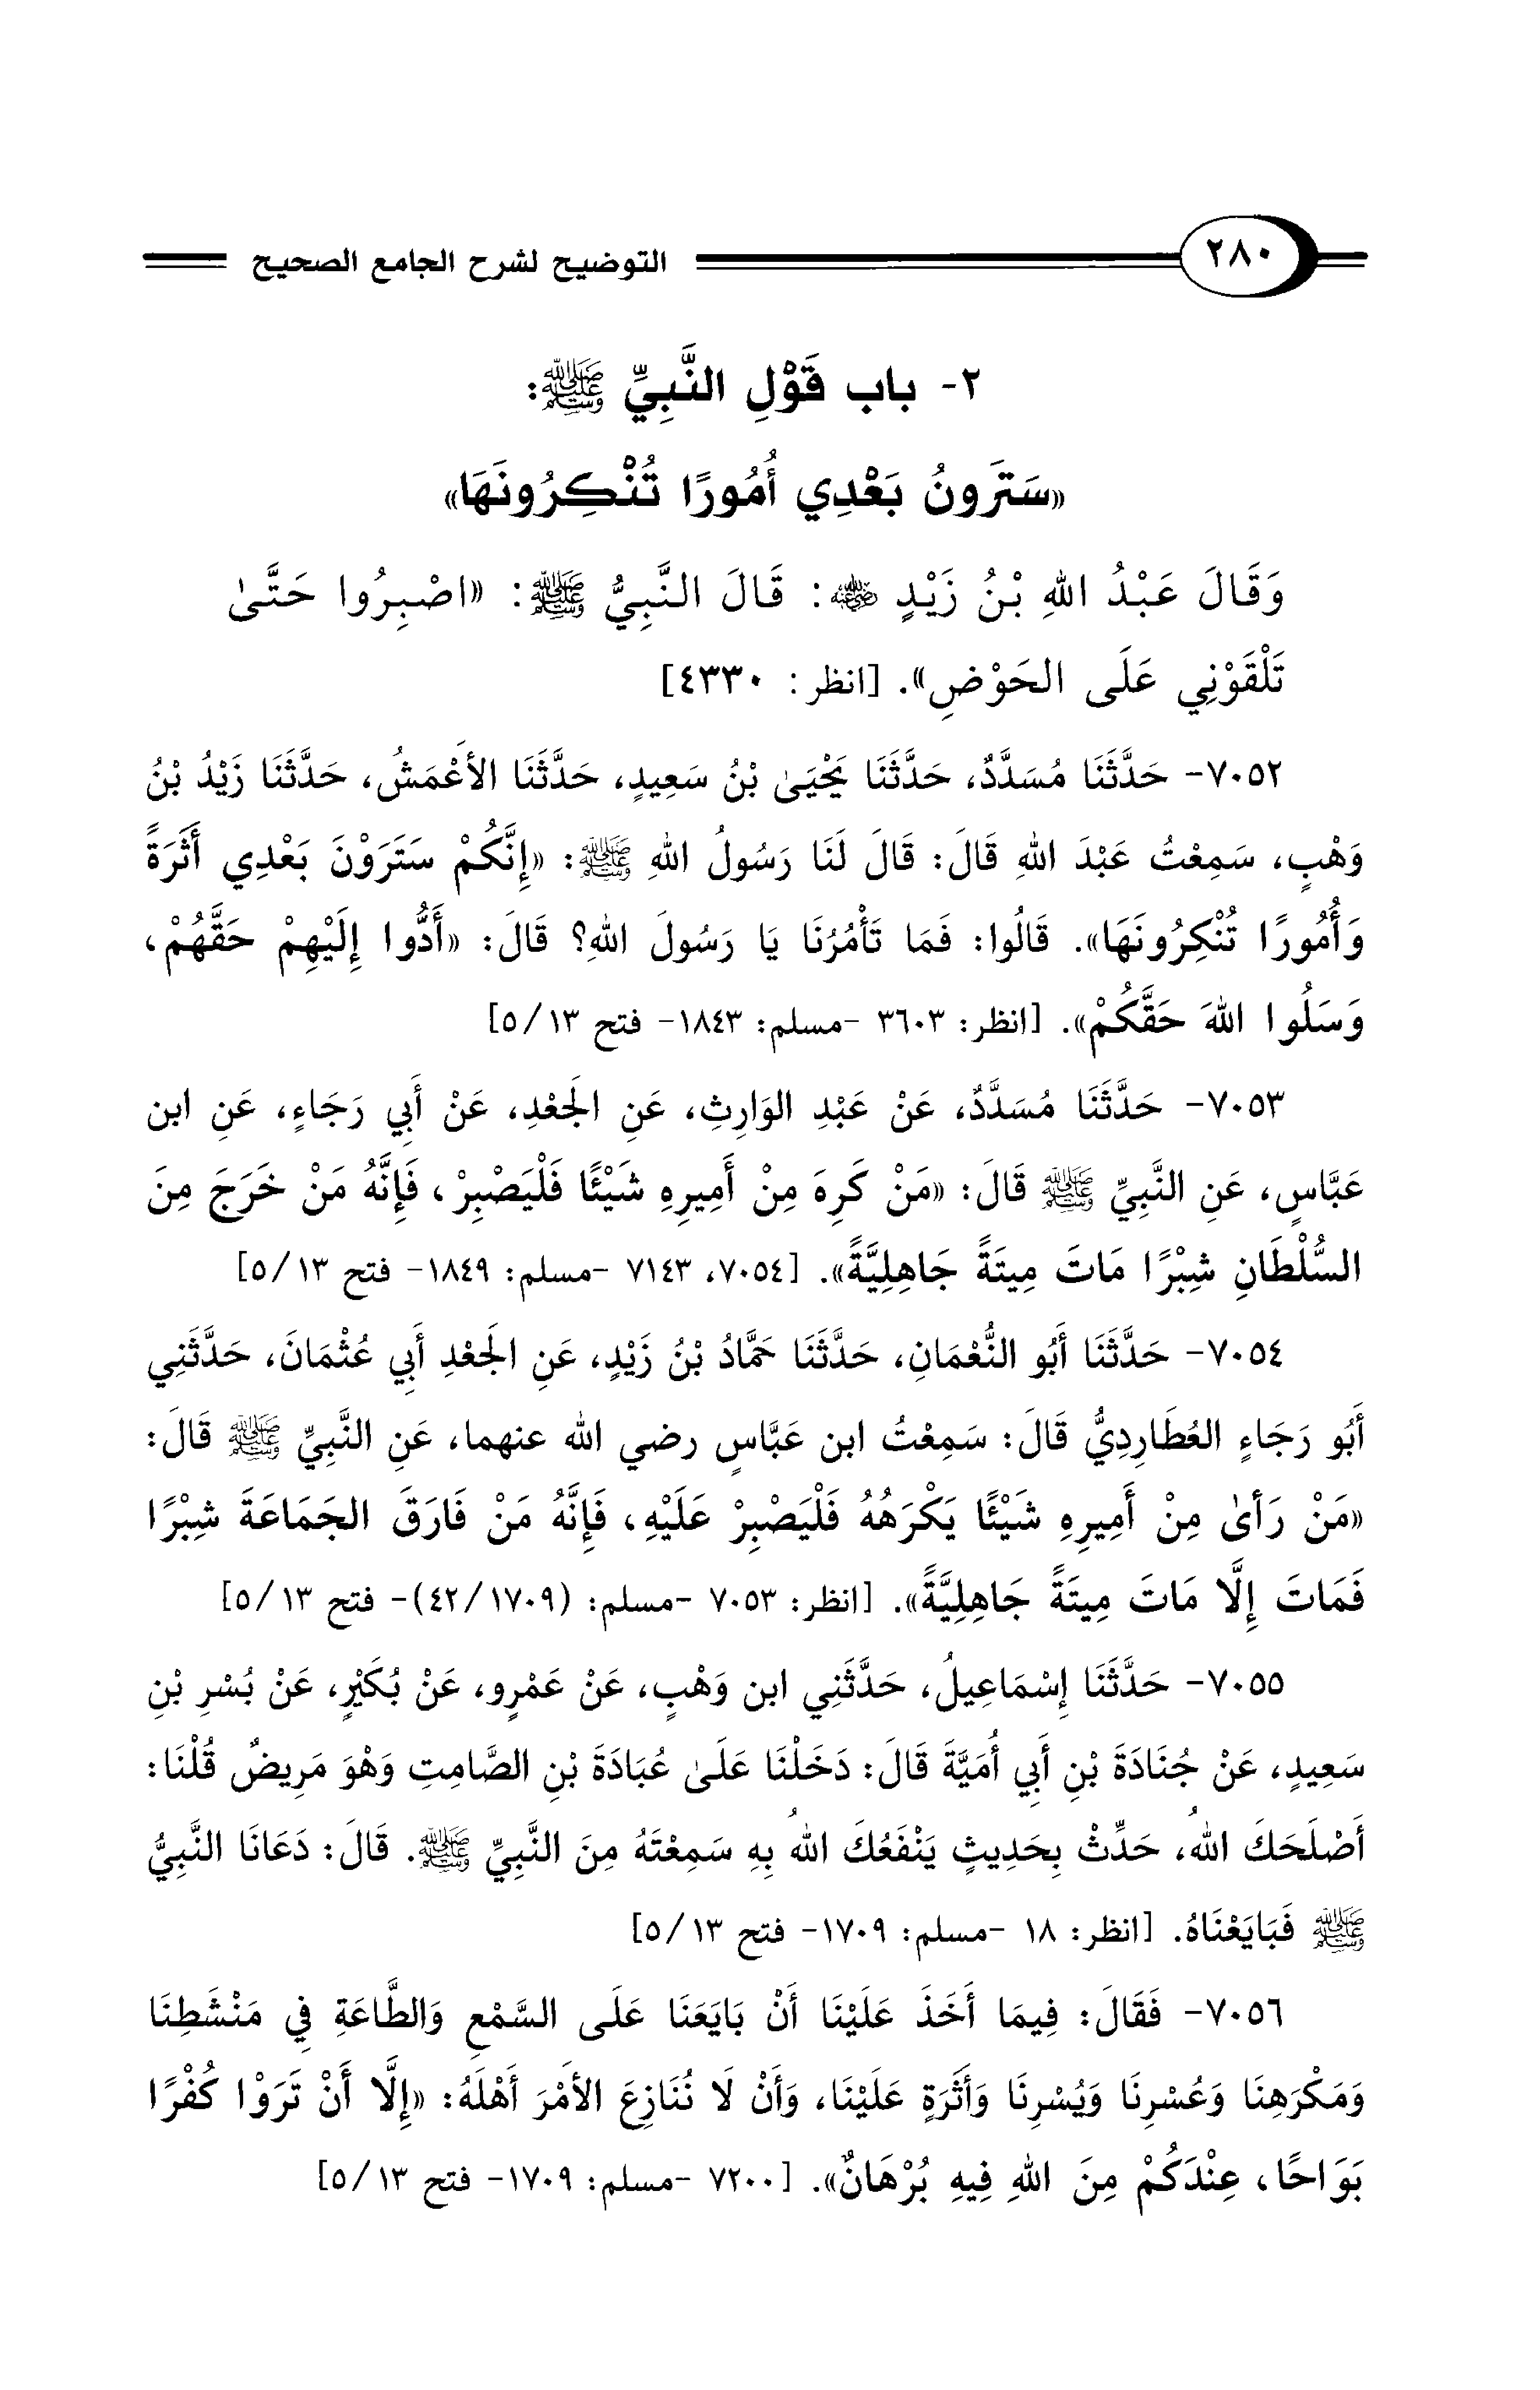 ٢٨٠
التوضيح لشرح الجامع الصحيح
٢- باب قَوْلِ النَّبِيِّ ﷺ:
«سَتَرَونُ بَعْدِي أُمُورًا تُنْكِرُونَهَا»
وَقَالَ عَبْدُ اللهِ بْنُ زَيْدٍ رضي الله عنه: قَالَ النَّبِيُّ ﷺ: «اصْبِرُوا حَتَّىٰ
تَلْقَوْنِي عَلَى الحَوْضِ». [انظر: ٤٣٣٠]
٧٠٥٢- حَدَّثَنَا مُسَدَّدٌ، حَدَّثَنَا يَحْيَىٰ بْنُ سَعِيدٍ، حَدَّثَنَا الأَعْمَشُ، حَدَّثَنَا زَيْدُ بْنُ
وَهْبٍ، سَمِعْتُ عَبْدَ اللهِ قَالَ: قَالَ لَنَا رَسُولُ اللهِ ﷺ: «إِنَّكُمْ سَتَرَوْنَ بَعْدِي أَثَرَةً
وَأُمُورًا تُنْكِرُونَهَا». قَالُوا: فَمَا تَأْمُرُنَا يَا رَسُولَ اللهِ؟ قَالَ: «أَدُّوا إِلَيْهِمْ حَقَّهُمْ،
وَسَلُوا اللهَ حَقَّكُمْ». [انظر: ٣٦٠٣ -مسلم: ١٨٤٣- فتح ١٣/ ٥]
٧٠٥٣- حَدَّثَنَا مُسَدَّدٌ، عَنْ عَبْدِ الوَارِثِ، عَنِ الجَعْدِ، عَنْ أَبِي رَجَاءٍ، عَنِ ابن
عَبَّاسٍ، عَنِ النَّبِيِّ ﷺ قَالَ: «مَنْ كَرِهَ مِنْ أَمِيرِهِ شَيْئًا فَلْيَصْبِرْ، فَإِنَّهُ مَنْ خَرَجَ مِنَ
السُّلْطَانِ شِبْرًا مَاتَ مِيتَةً جَاهِلِيَّةً». [٧٠٥٤، ٧١٤٣ -مسلم: ١٨٤٩- فتح ١٣/ ٥]
٧٠٥٤- حَدَّثَنَا أَبُو النُّعْمَانِ، حَدَّثَنَا حَمَّادُ بْنُ زَيْدٍ، عَنِ الجَعْدِ أَبِي عُثْمَانَ، حَدَّثَنِي
أَبُو رَجَاءٍ العُطَارِدِيُّ قَالَ: سَمِعْتُ ابن عَبَّاسٍ رضي الله عنهما، عَنِ النَّبِيِّ ﷺ قَالَ:
«مَنْ رَأىٰ مِنْ أَمِيرِهِ شَيْئًا يَكْرَهُهُ فَلْيَصْبِرْ عَلَيْهِ، فَإِنَّهُ مَنْ فَارَقَ الجَمَاعَةَ شِبْرًا
فَمَاتَ إِلَّا مَاتَ مِيتَةً جَاهِلِيَّةً». [انظر: ٧٠٥٣ -مسلم: (١٧٠٩/ ٤٢)- فتح ١٣/ ٥]
٧٠٥٥- حَدَّثَنَا إِسْمَاعِيلُ، حَدَّثَنِي ابن وَهْبٍ، عَنْ عَمْرٍو، عَنْ بُكَيْرٍ، عَنْ بُسْرِ بْنِ
سَعِيدٍ، عَنْ جُنَادَةَ بْنِ أَبِي أُمَيَّةَ قَالَ: دَخَلْنَا عَلَىٰ عُبَادَةَ بْنِ الصَّامِتِ وَهْوَ مَرِيضٌ قُلْنَا:
أَصْلَحَكَ اللهُ، حَدِّثْ بِحَدِيثٍ يَنْفَعُكَ اللهُ بِهِ سَمِعْتَهُ مِنَ النَّبِيِّ ﷺ. قَالَ: دَعَانَا النَّبِيُّ
ﷺ فَبَايَعْنَاهُ. [انظر: ١٨ -مسلم: ١٧٠٩- فتح ١٣/ ٥]
٧٠٥٦- فَقَالَ: فِيمَا أَخَذَ عَلَيْنَا أَنْ بَايَعَنَا عَلَى السَّمْعِ وَالطَّاعَةِ فِي مَنْشَطِنَا
وَمَكْرَهِنَا وَعُسْرِنَا وَيُسْرِنَا وَأَثَرَةٍ عَلَيْنَا، وَأَنْ لَا نُنَازِعَ الأَمْرَ أَهْلَهُ: «إِلَّا أَنْ تَرَوْا كُفْرًا
بَوَاحًا، عِنْدَكُمْ مِنَ اللهِ فِيهِ بُرْهَانٌ». [٧٢٠٠ -مسلم: ١٧٠٩- فتح ١٣/ ٥]